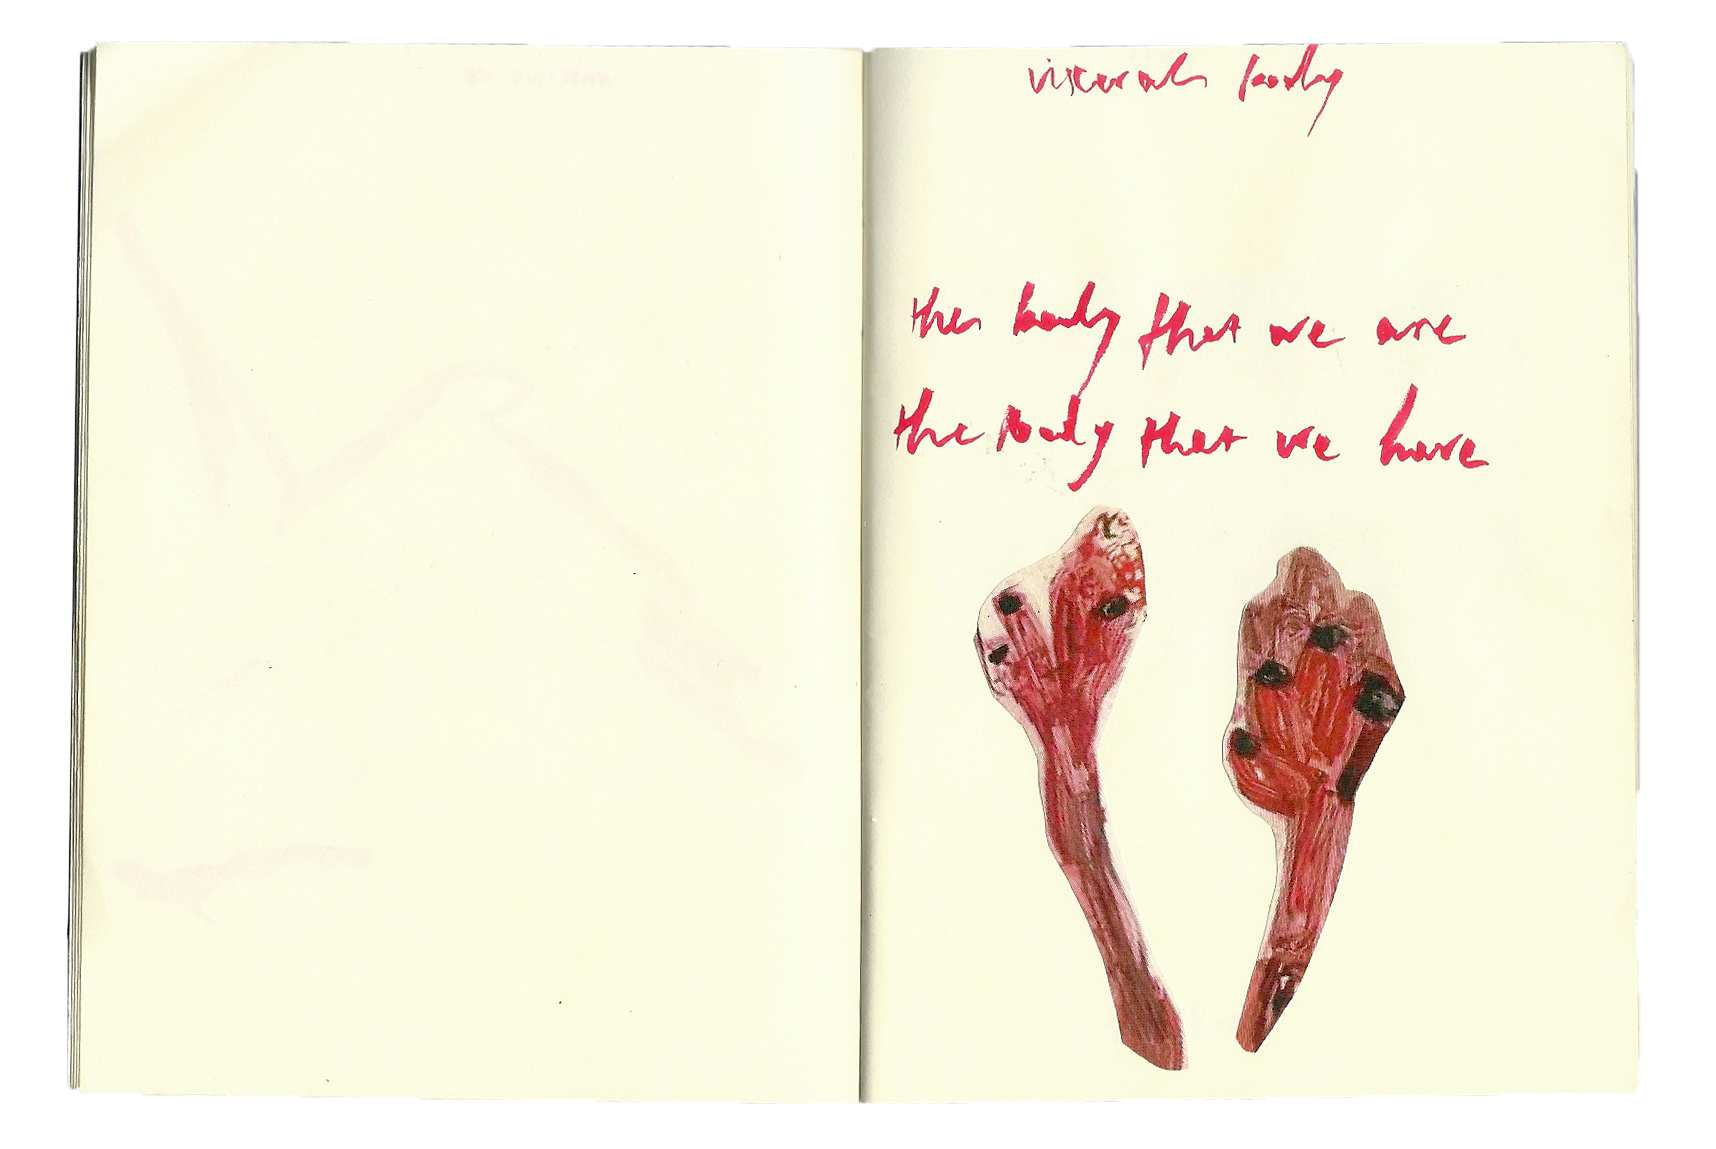 visceral body
the body that we are
the body that we have